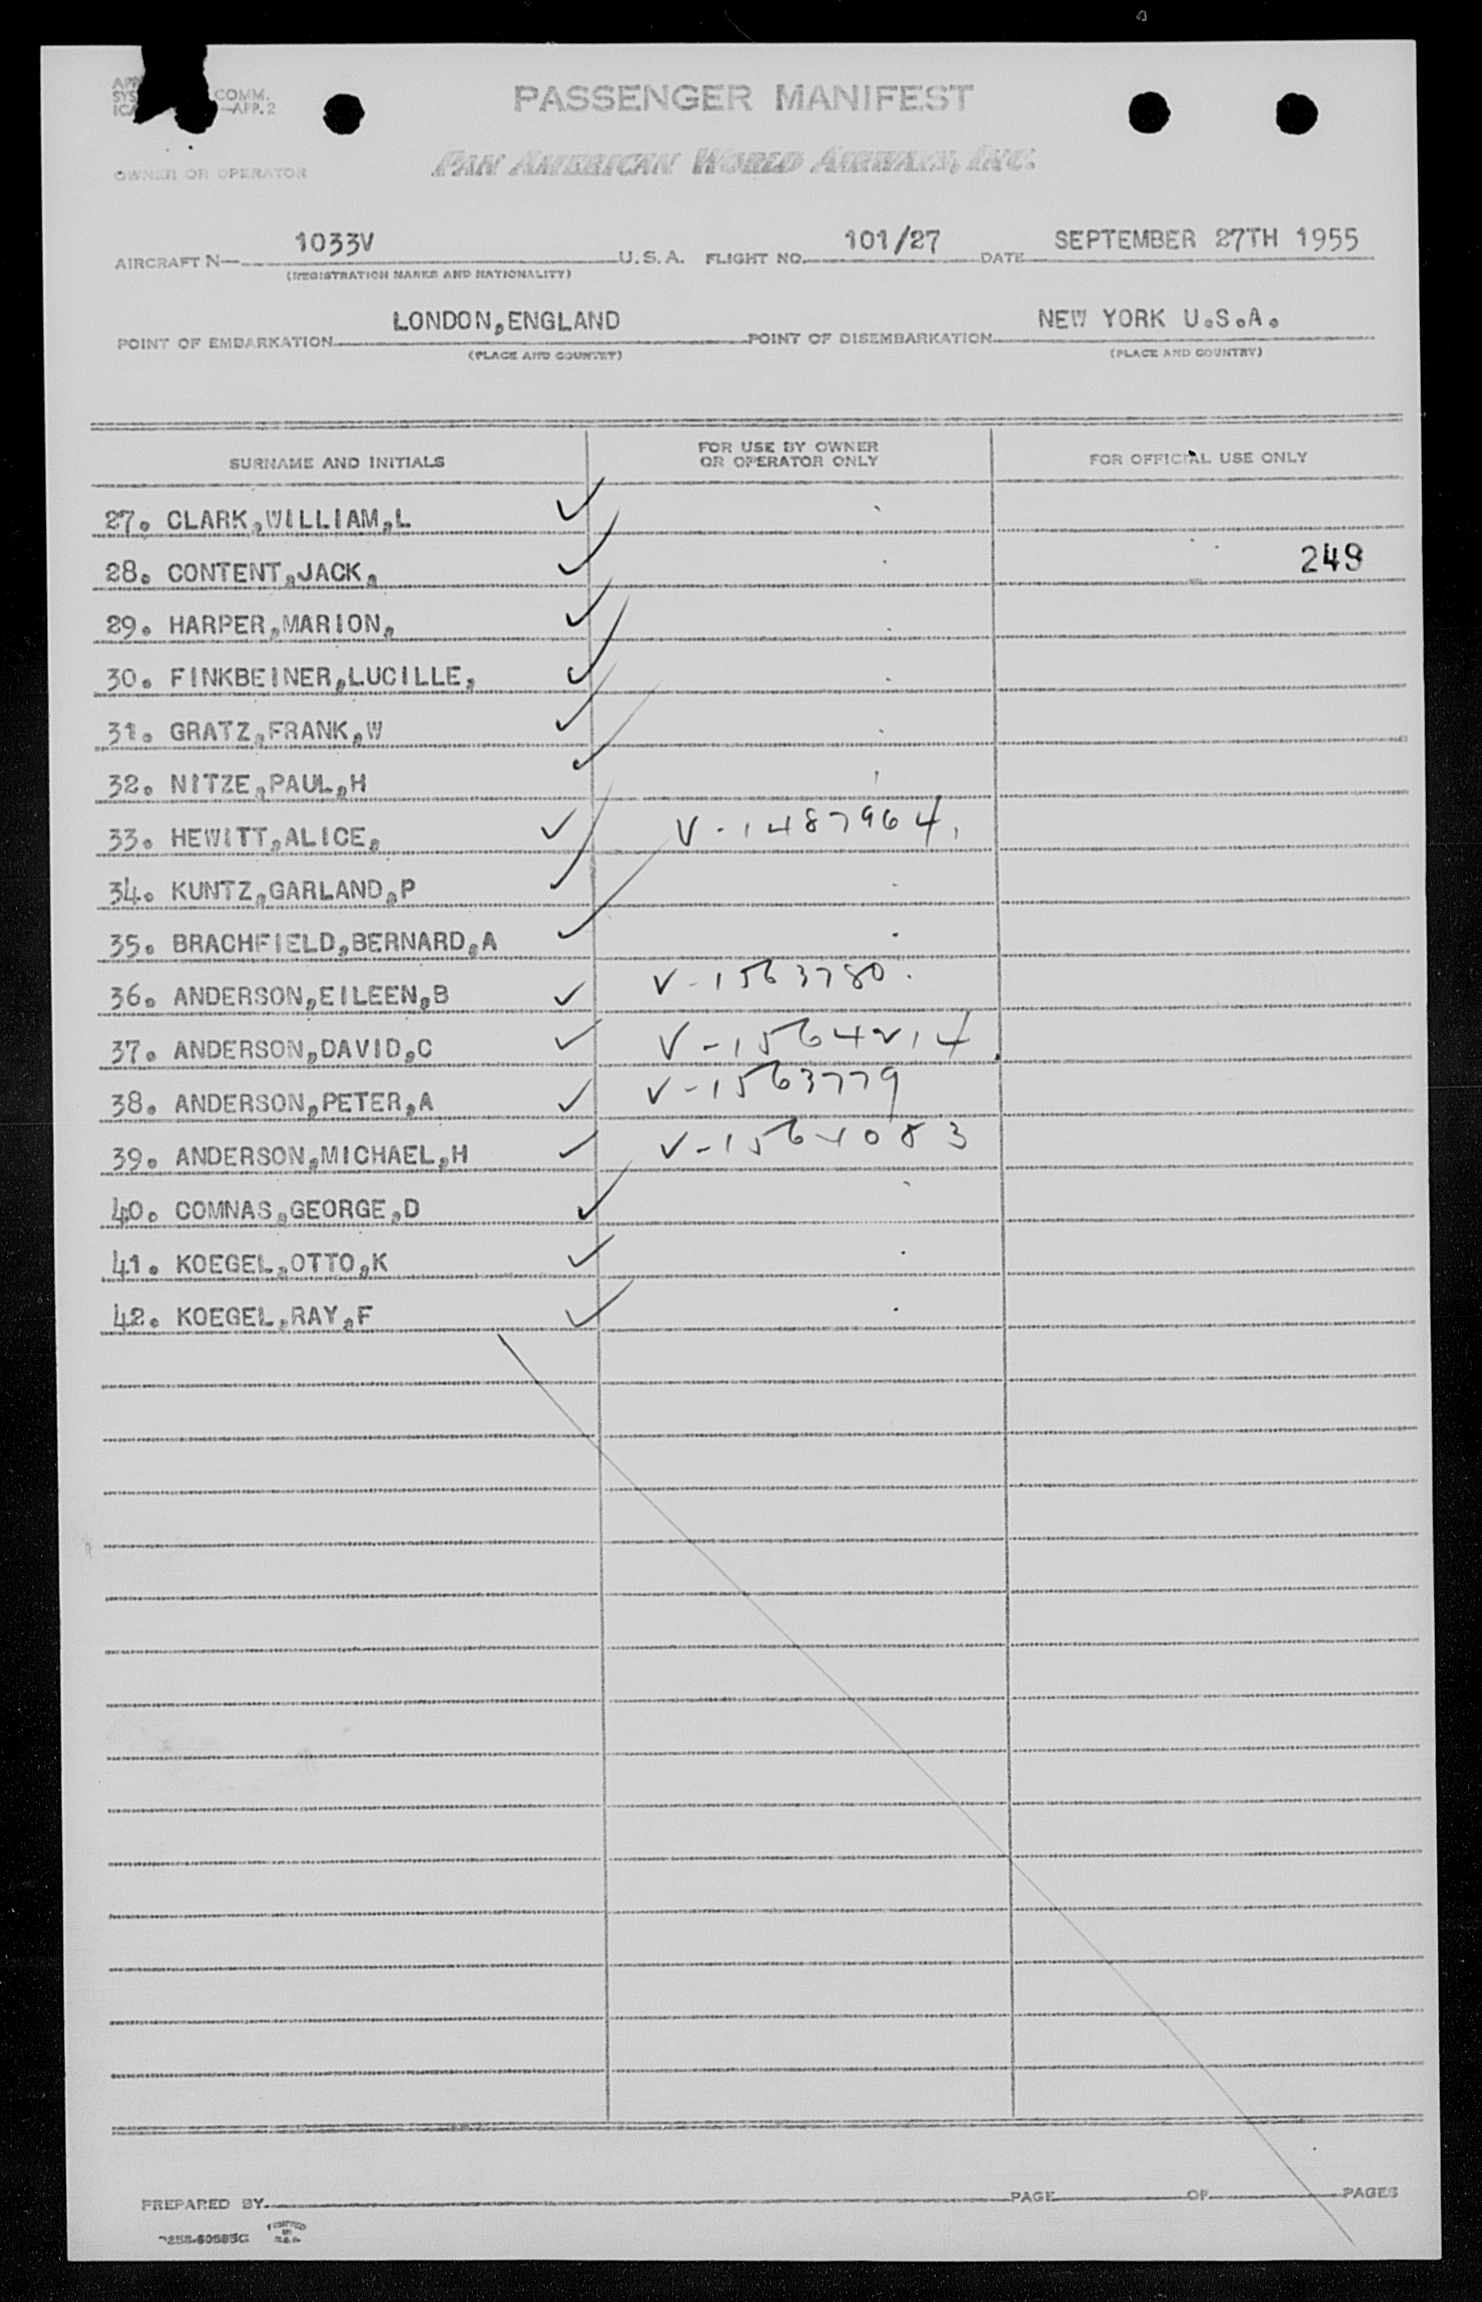 COMM.
—APP. 2
PASSENGER MANIFEST
OWNER OR OPERATOR
PAN AMERICAN WORLD AIRWAYS, INC.
AIRCRAFT N— 1033V U.S.A. FLIGHT NO. 101/27 DATE SEPTEMBER 27TH 1955
(REGISTRATION MARKS AND NATIONALITY)
POINT OF EMBARKATION LONDON,ENGLAND POINT OF DISEMBARKATION NEW YORK U.S.A.
(PLACE AND COUNTRY) (PLACE AND COUNTRY)
SURNAME AND INITIALS FOR USE BY OWNER OR OPERATOR ONLY FOR OFFICIAL USE ONLY
27. CLARK,WILLIAM,L
28. CONTENT,JACK, 249
29. HARPER,MARION,
30. FINKBEINER,LUCILLE,
31. GRATZ,FRANK,W
32. NITZE,PAUL,H
33. HEWITT,ALICE, V-1487964.
34. KUNTZ,GARLAND,P
35. BRACHFIELD,BERNARD,A
36. ANDERSON,EILEEN,B V-1563780.
37. ANDERSON,DAVID,C V-1564214
38. ANDERSON,PETER,A V-1563779
39. ANDERSON,MICHAEL,H V-1564083
40. COMNAS,GEORGE,D
41. KOEGEL,OTTO,K
42. KOEGEL,RAY,F
PREPARED BY PAGE OF PAGES